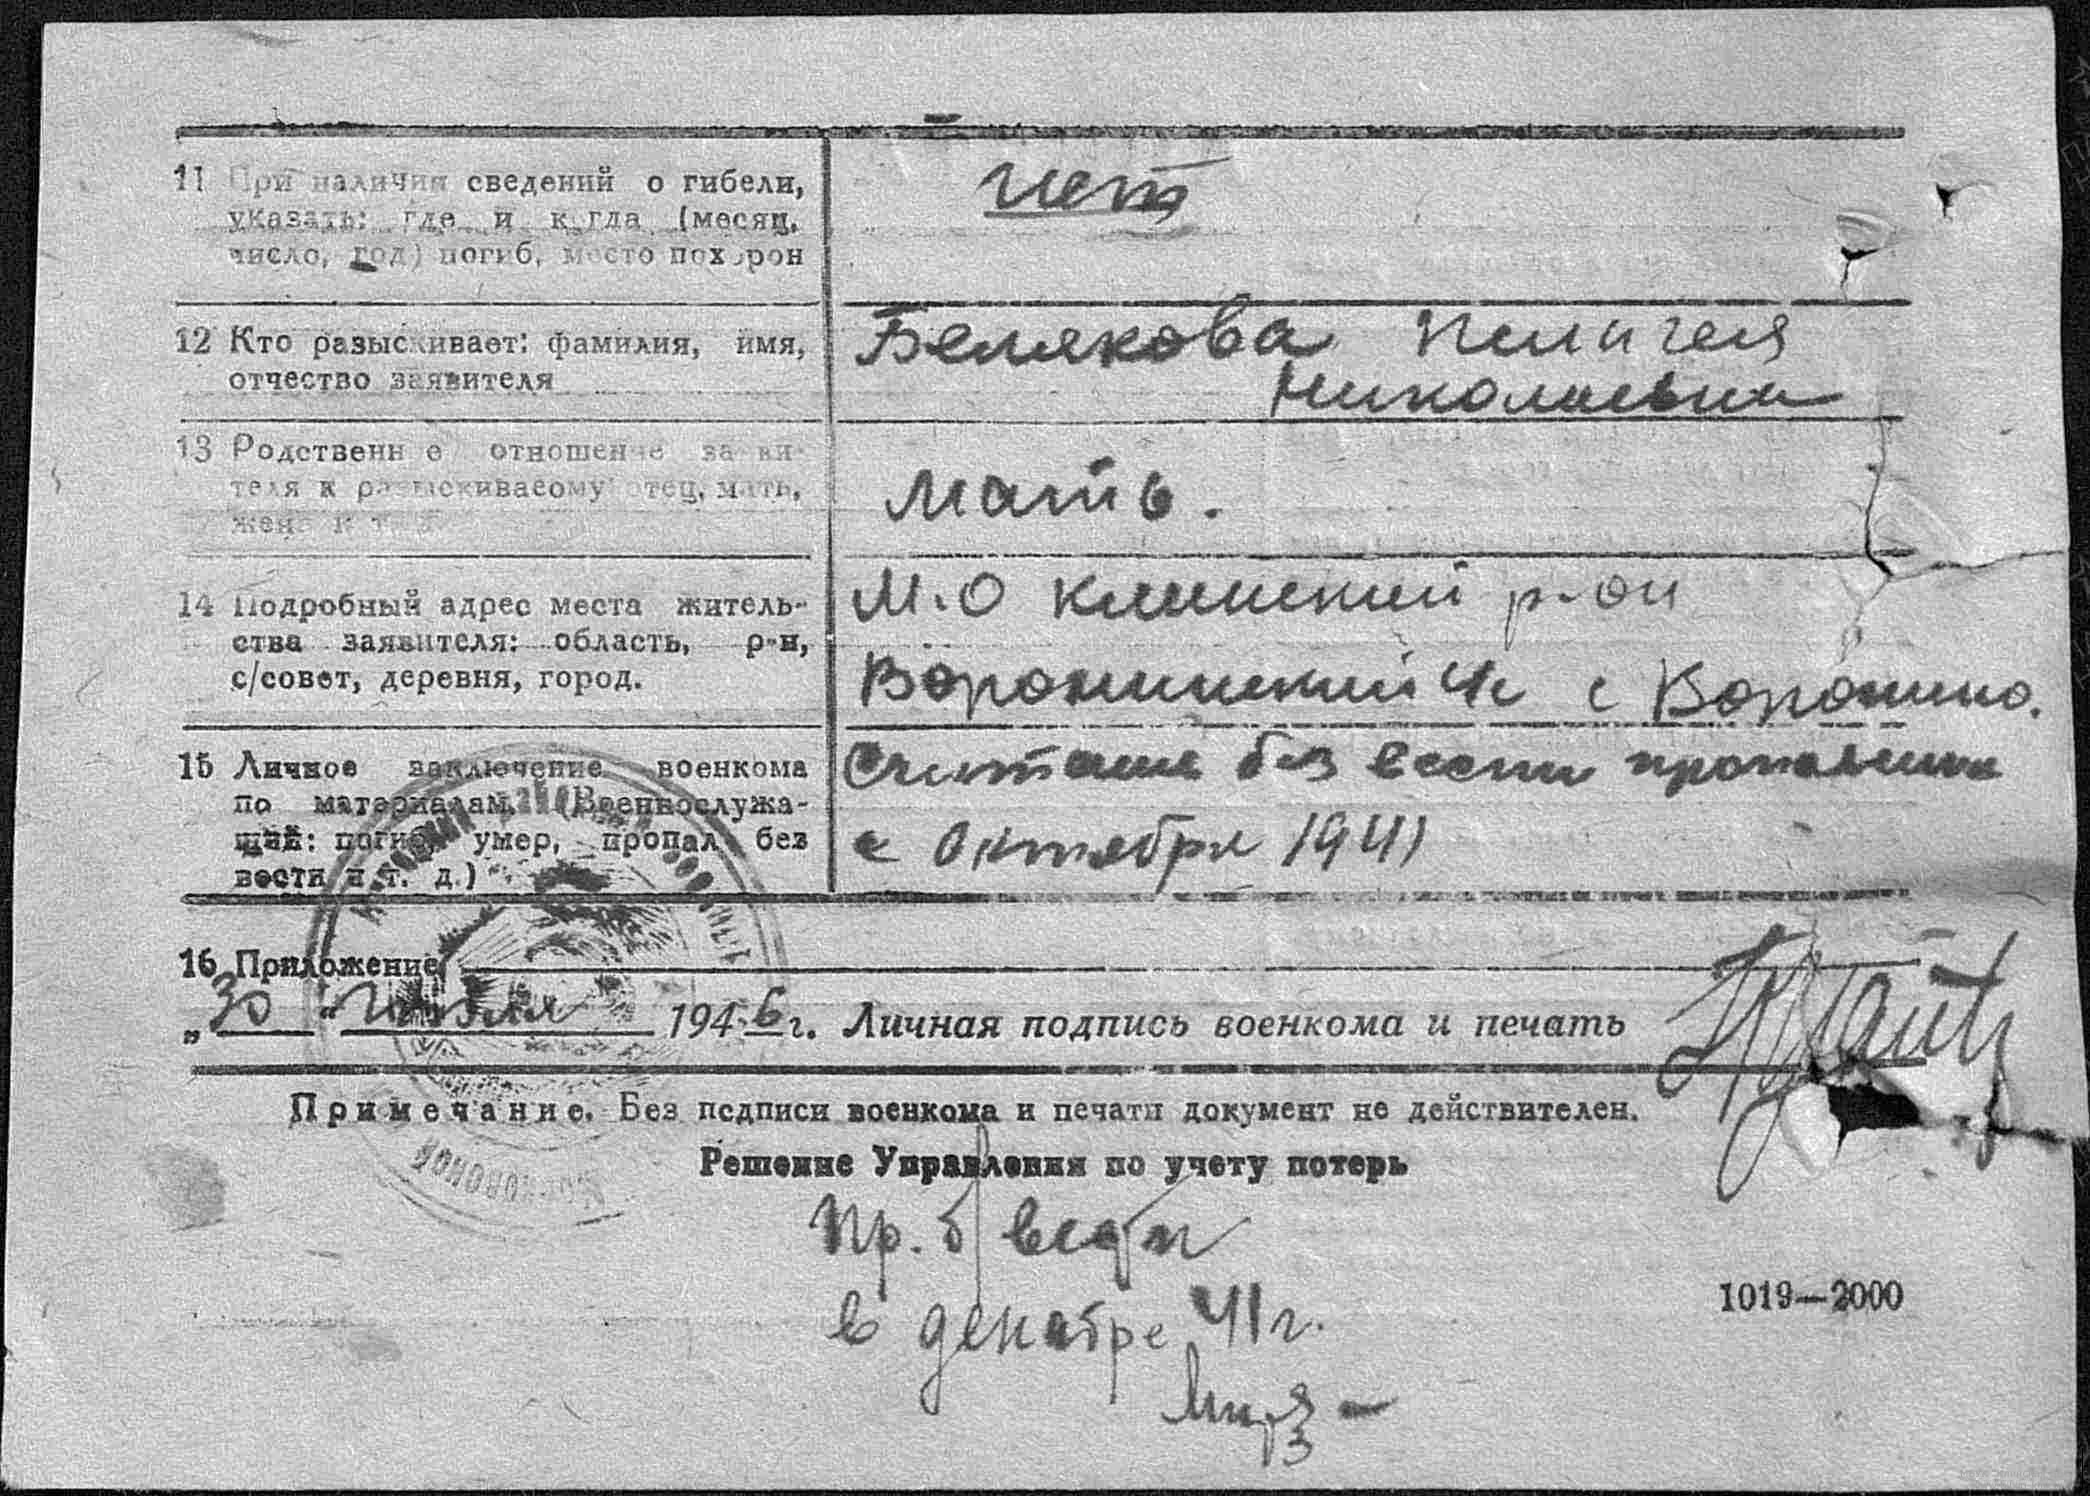 11 При наличии сведений о гибели,
указать: где и когда (месяц,
число, год) погиб, место похорон
нет
12 Кто разыскивает: фамилия, имя,
отчество заявителя
Белякова Пелигея
Николаевна
13 Родственное отношение заяви-
теля к разыскиваемому отец, мать,
жена и т. д.
Мать.
14 Подробный адрес места житель-
ства заявителя: область, р-н,
с/совет, деревня, город.
М.О Клинский р-он
Воронинский с/с с Воронино.
15 Личное заключение военкома
по материалам. (Военнослужа-
щий: погиб, умер, пропал без
вести и т. д.)
Считаем без вести пропавшим
с Октября 1941
16 Приложение
„30“ 1946 г. Личная подпись военкома и печать
Примечание. Без подписи военкома и печати документ не действителен.
Решение Управления по учету потерь
Пр. б/вести
в декабре 41 г.
1019—2000